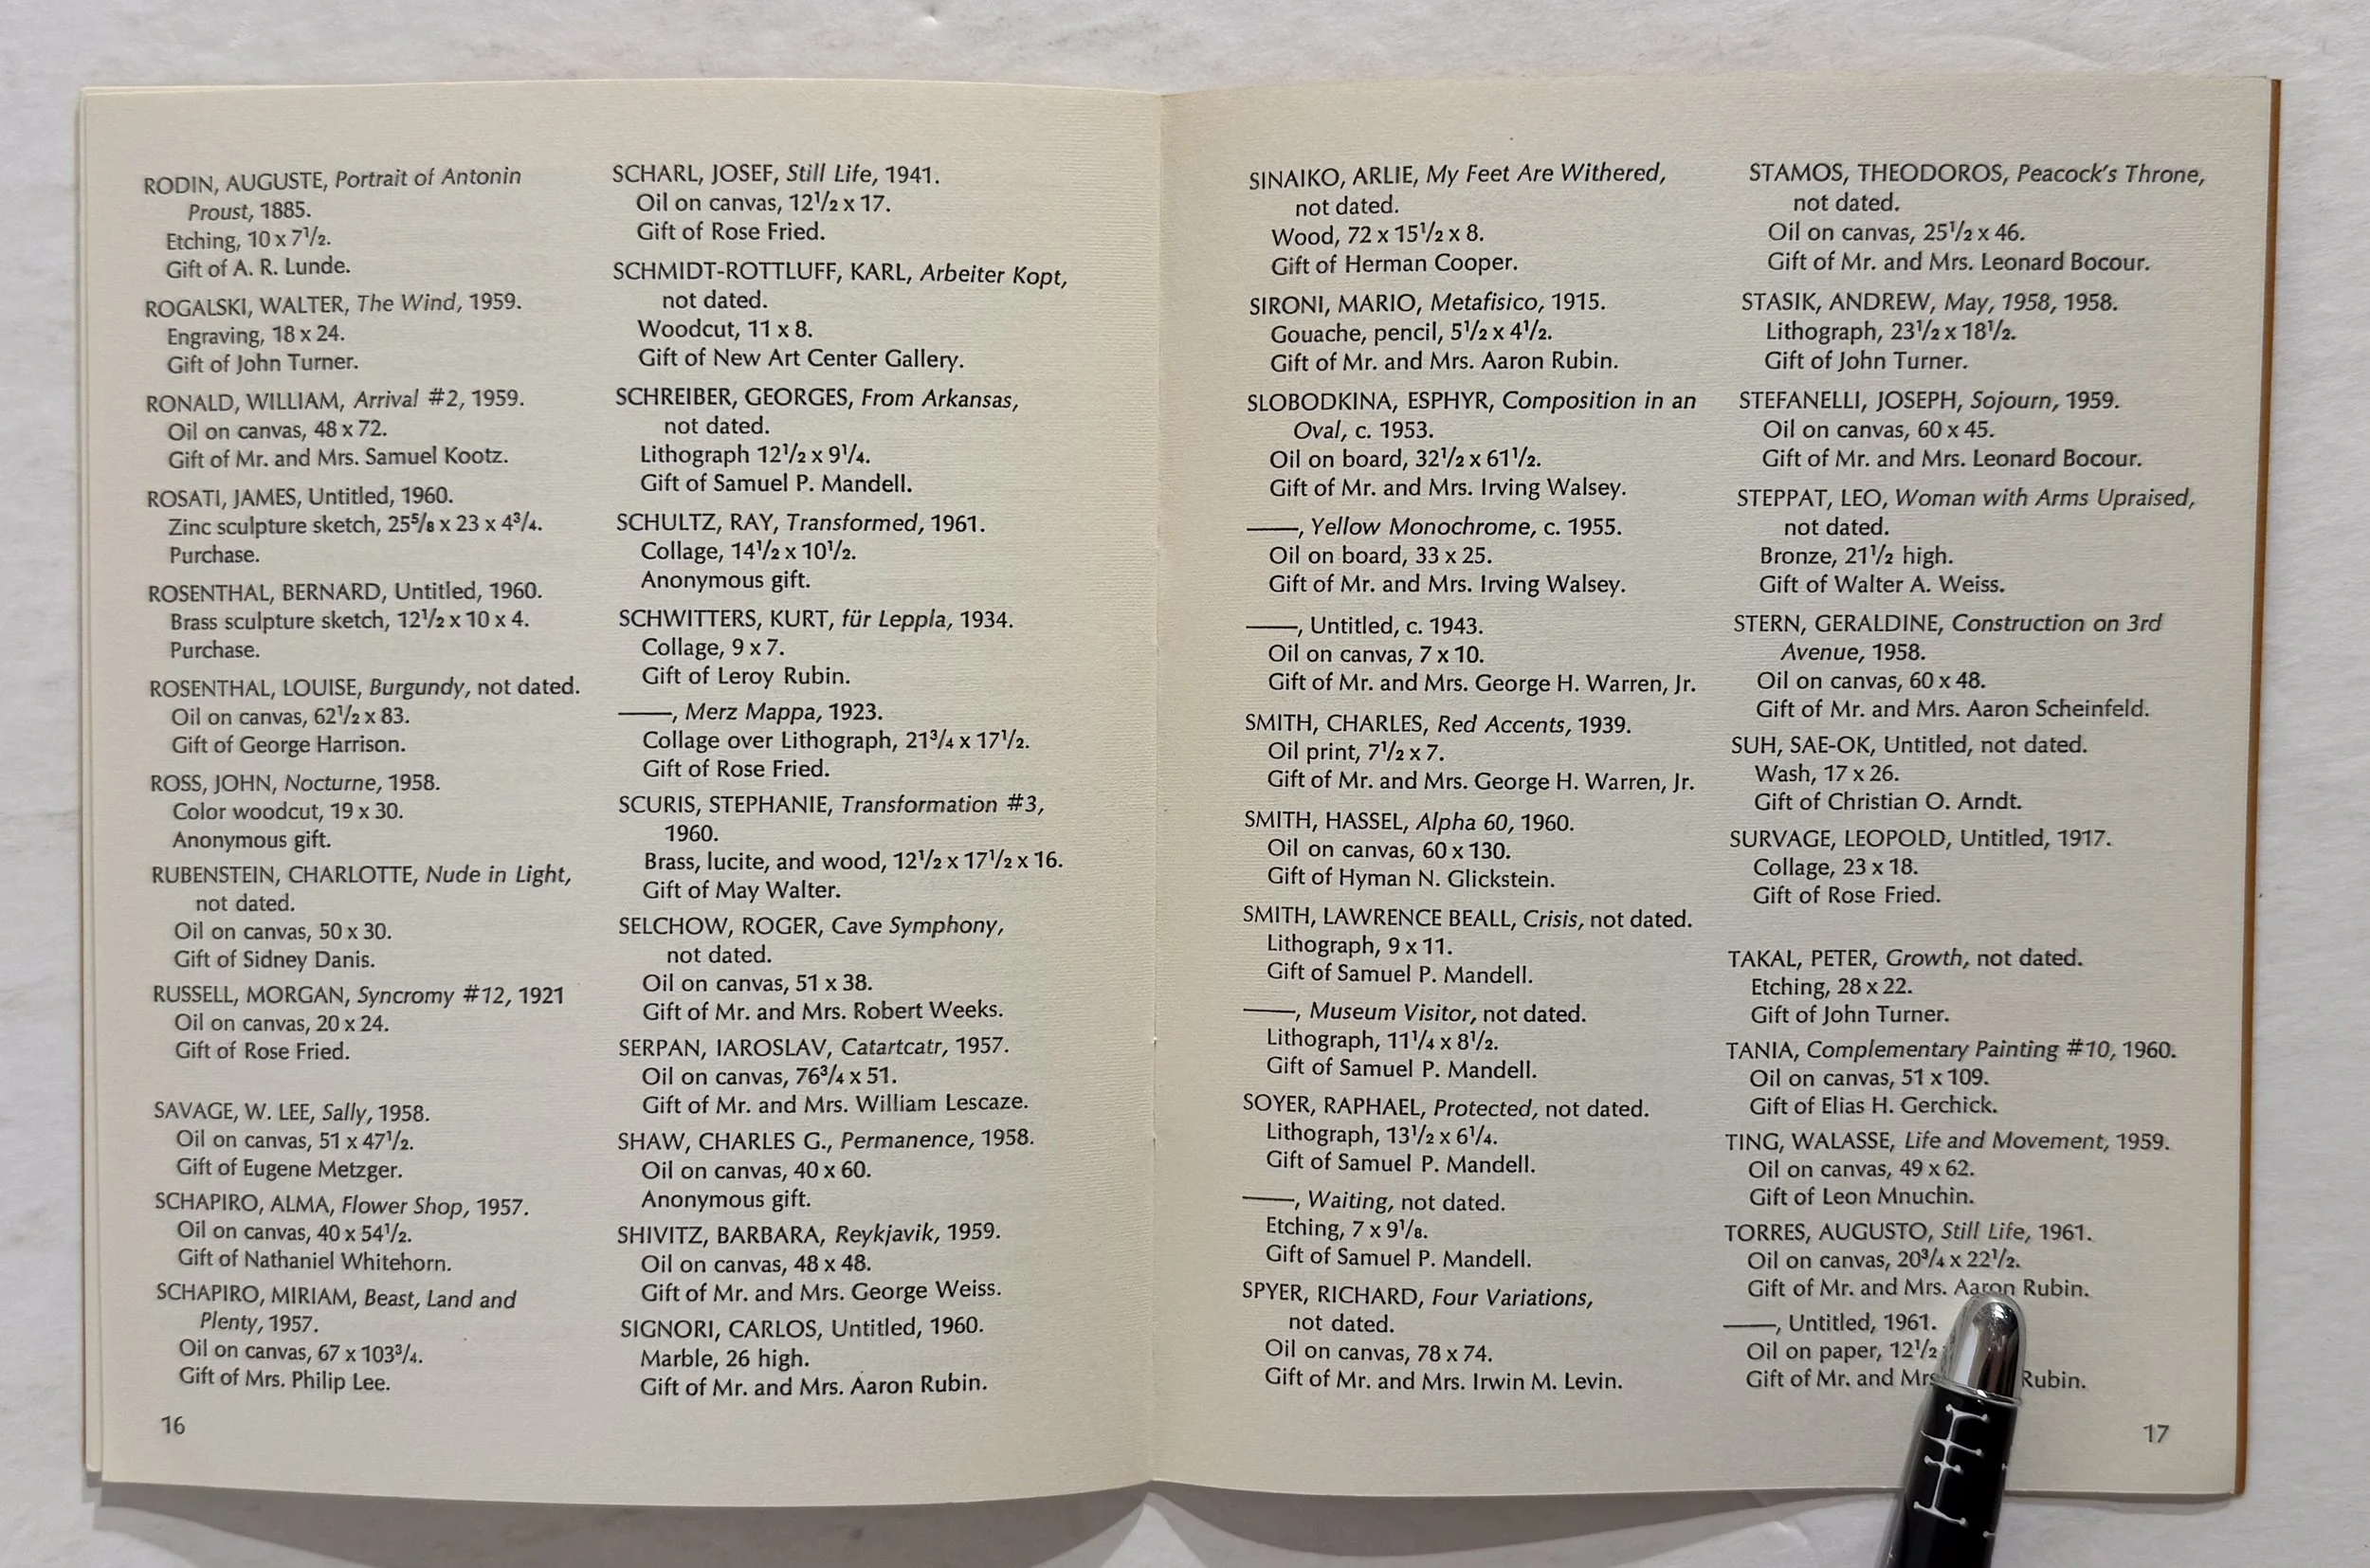 RODIN, AUGUSTE, Portrait of Antonin
Proust, 1885.
Etching, 10 x 7½.
Gift of A. R. Lunde.
ROGALSKI, WALTER, The Wind, 1959.
Engraving, 18 x 24.
Gift of John Turner.
RONALD, WILLIAM, Arrival #2, 1959.
Oil on canvas, 48 x 72.
Gift of Mr. and Mrs. Samuel Kootz.
ROSATI, JAMES, Untitled, 1960.
Zinc sculpture sketch, 25⅝ x 23 x 4¾.
Purchase.
ROSENTHAL, BERNARD, Untitled, 1960.
Brass sculpture sketch, 12½ x 10 x 4.
Purchase.
ROSENTHAL, LOUISE, Burgundy, not dated.
Oil on canvas, 62½ x 83.
Gift of George Harrison.
ROSS, JOHN, Nocturne, 1958.
Color woodcut, 19 x 30.
Anonymous gift.
RUBENSTEIN, CHARLOTTE, Nude in Light,
not dated.
Oil on canvas, 50 x 30.
Gift of Sidney Danis.
RUSSELL, MORGAN, Syncromy #12, 1921
Oil on canvas, 20 x 24.
Gift of Rose Fried.
SAVAGE, W. LEE, Sally, 1958.
Oil on canvas, 51 x 47½.
Gift of Eugene Metzger.
SCHAPIRO, ALMA, Flower Shop, 1957.
Oil on canvas, 40 x 54½.
Gift of Nathaniel Whitehorn.
SCHAPIRO, MIRIAM, Beast, Land and
Plenty, 1957.
Oil on canvas, 67 x 103¾.
Gift of Mrs. Philip Lee.
16
SCHARL, JOSEF, Still Life, 1941.
Oil on canvas, 12½ x 17.
Gift of Rose Fried.
SCHMIDT-ROTTLUFF, KARL, Arbeiter Kopt,
not dated.
Woodcut, 11 x 8.
Gift of New Art Center Gallery.
SCHREIBER, GEORGES, From Arkansas,
not dated.
Lithograph 12½ x 9¼.
Gift of Samuel P. Mandell.
SCHULTZ, RAY, Transformed, 1961.
Collage, 14½ x 10½.
Anonymous gift.
SCHWITTERS, KURT, für Leppla, 1934.
Collage, 9 x 7.
Gift of Leroy Rubin.
——, Merz Mappa, 1923.
Collage over Lithograph, 21¾ x 17½.
Gift of Rose Fried.
SCURIS, STEPHANIE, Transformation #3,
1960.
Brass, lucite, and wood, 12½ x 17½ x 16.
Gift of May Walter.
SELCHOW, ROGER, Cave Symphony,
not dated.
Oil on canvas, 51 x 38.
Gift of Mr. and Mrs. Robert Weeks.
SERPAN, IAROSLAV, Catartcatr, 1957.
Oil on canvas, 76¾ x 51.
Gift of Mr. and Mrs. William Lescaze.
SHAW, CHARLES G., Permanence, 1958.
Oil on canvas, 40 x 60.
Anonymous gift.
SHIVITZ, BARBARA, Reykjavik, 1959.
Oil on canvas, 48 x 48.
Gift of Mr. and Mrs. George Weiss.
SIGNORI, CARLOS, Untitled, 1960.
Marble, 26 high.
Gift of Mr. and Mrs. Aaron Rubin.
SINAIKO, ARLIE, My Feet Are Withered,
not dated.
Wood, 72 x 15½ x 8.
Gift of Herman Cooper.
SIRONI, MARIO, Metafisico, 1915.
Gouache, pencil, 5½ x 4½.
Gift of Mr. and Mrs. Aaron Rubin.
SLOBODKINA, ESPHYR, Composition in an
Oval, c. 1953.
Oil on board, 32½ x 61½.
Gift of Mr. and Mrs. Irving Walsey.
——, Yellow Monochrome, c. 1955.
Oil on board, 33 x 25.
Gift of Mr. and Mrs. Irving Walsey.
——, Untitled, c. 1943.
Oil on canvas, 7 x 10.
Gift of Mr. and Mrs. George H. Warren, Jr.
SMITH, CHARLES, Red Accents, 1939.
Oil print, 7½ x 7.
Gift of Mr. and Mrs. George H. Warren, Jr.
SMITH, HASSEL, Alpha 60, 1960.
Oil on canvas, 60 x 130.
Gift of Hyman N. Glickstein.
SMITH, LAWRENCE BEALL, Crisis, not dated.
Lithograph, 9 x 11.
Gift of Samuel P. Mandell.
——, Museum Visitor, not dated.
Lithograph, 11¼ x 8½.
Gift of Samuel P. Mandell.
SOYER, RAPHAEL, Protected, not dated.
Lithograph, 13½ x 6¼.
Gift of Samuel P. Mandell.
——, Waiting, not dated.
Etching, 7 x 9⅛.
Gift of Samuel P. Mandell.
SPYER, RICHARD, Four Variations,
not dated.
Oil on canvas, 78 x 74.
Gift of Mr. and Mrs. Irwin M. Levin.
STAMOS, THEODOROS, Peacock's Throne,
not dated.
Oil on canvas, 25½ x 46.
Gift of Mr. and Mrs. Leonard Bocour.
STASIK, ANDREW, May, 1958, 1958.
Lithograph, 23½ x 18½.
Gift of John Turner.
STEFANELLI, JOSEPH, Sojourn, 1959.
Oil on canvas, 60 x 45.
Gift of Mr. and Mrs. Leonard Bocour.
STEPPAT, LEO, Woman with Arms Upraised,
not dated.
Bronze, 21½ high.
Gift of Walter A. Weiss.
STERN, GERALDINE, Construction on 3rd
Avenue, 1958.
Oil on canvas, 60 x 48.
Gift of Mr. and Mrs. Aaron Scheinfeld.
SUH, SAE-OK, Untitled, not dated.
Wash, 17 x 26.
Gift of Christian O. Arndt.
SURVAGE, LEOPOLD, Untitled, 1917.
Collage, 23 x 18.
Gift of Rose Fried.
TAKAL, PETER, Growth, not dated.
Etching, 28 x 22.
Gift of John Turner.
TANIA, Complementary Painting #10, 1960.
Oil on canvas, 51 x 109.
Gift of Elias H. Gerchick.
TING, WALASSE, Life and Movement, 1959.
Oil on canvas, 49 x 62.
Gift of Leon Mnuchin.
TORRES, AUGUSTO, Still Life, 1961.
Oil on canvas, 20¾ x 22½.
Gift of Mr. and Mrs. Aaron Rubin.
——, Untitled, 1961.
Oil on paper, 12½
Gift of Mr. and Mrs Rubin.
17